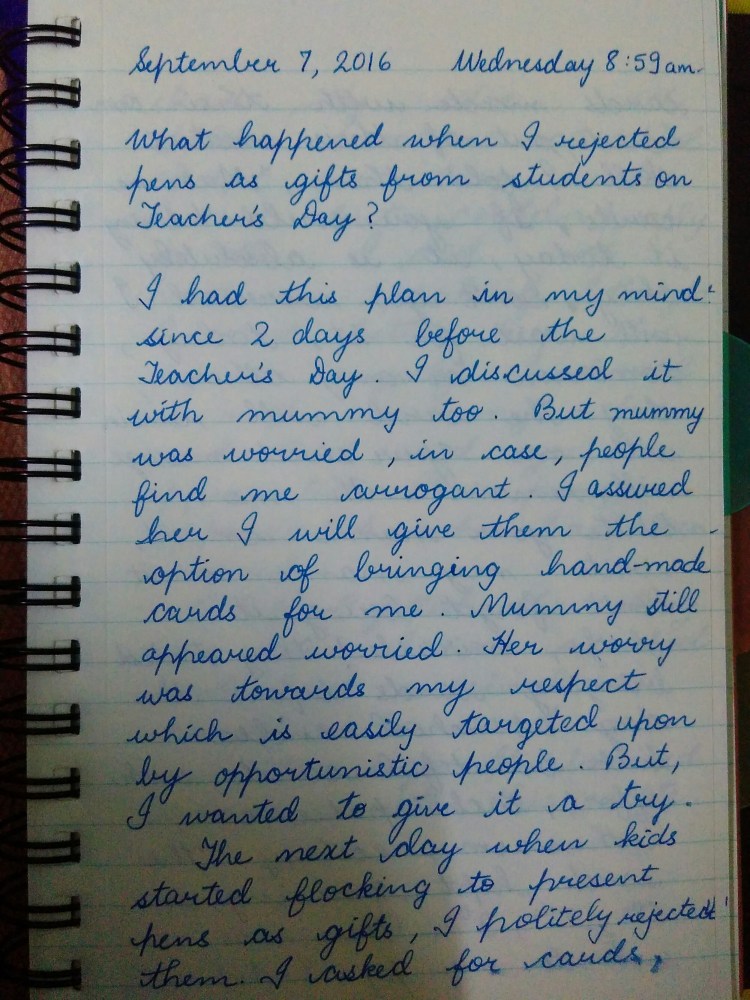 September 7, 2016 Wednesday 8:59am.
What happened when I rejected
pens as gifts from students on
Teacher's Day?
I had this plan in my mind
since 2 days before the
Teacher's Day. I discussed it
with mummy too. But mummy
was worried, in case, people
find me arrogant. I assured
her I will give them the
option of bringing hand-made
cards for me. Mummy still
appeared worried. Her worry
was towards my respect
which is easily targeted upon
by opportunistic people. But,
I wanted to give it a try.
The next day when kids
started flocking to present
pens as gifts, I politely rejected
them. I asked for cards,